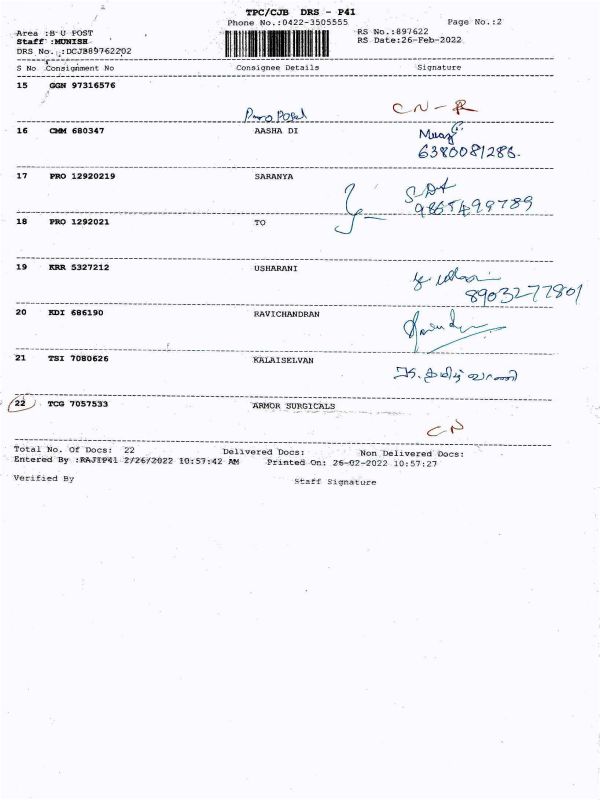 TPC/CJB DRS - P41
Phone No.:0422-3505555 Page No.:2
Area :B U POST RS No.:897622
Staff :MUNISH RS Date:26-Feb-2022
DRS No. :DCJB89762202
S No Consignment No Consignee Details Signature
15 GGN 97316576
CN-R
16 CMM 680347 AASHA DI
6380081286.
17 PRO 12920219 SARANYA
9865499789
18 PRO 1292021 TO
19 KRR 5327212 USHARANI
8903277801
20 KDI 686190 RAVICHANDRAN
21 TSI 7080626 KALAISELVAN
22 TCG 7057533 ARMOR SURGICALS
CN
Total No. Of Docs: 22 Delivered Docs: Non Delivered Docs:
Entered By :RAJIP41 2/26/2022 10:57:42 AM Printed On: 26-02-2022 10:57:27
Verified By Staff Signature